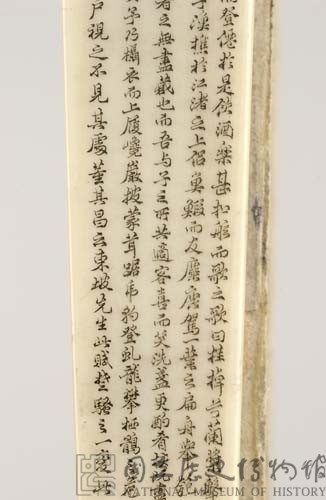 而登僊於是飲酒樂甚扣舷而歌之歌曰桂棹兮蘭槳擊
子漁樵於江渚之上侶魚鰕而友麋鹿駕一葉之扁舟舉匏
者之無盡藏也而吾與子之所共適客喜而笑洗盞更酌肴核既
予乃攝衣而上履巉巖披蒙茸踞虎豹登虬龍攀栖鶻之危
戶視之不見其處董其昌云東坡先生此賦楚騷之一變此
國立歷史博物館
NATIONAL MUSEUM OF HISTORY